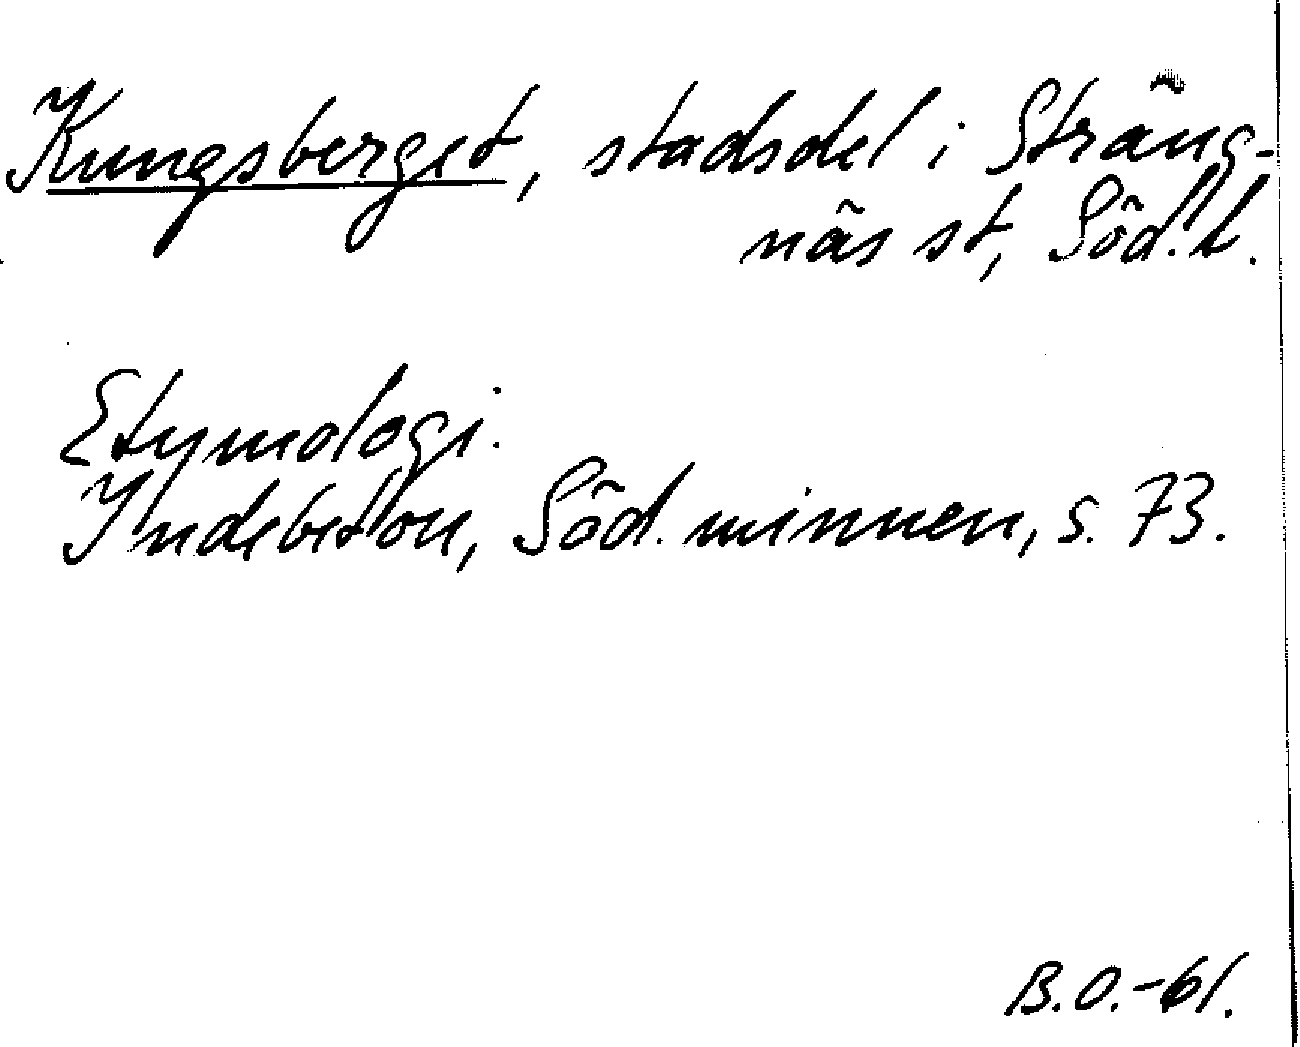 Kungsberget, stadsdel i Sträng-
näs st, Söd. l.
Etymologi.
Indebetou, Söd. minnen, s. 73.
B.O.-61.